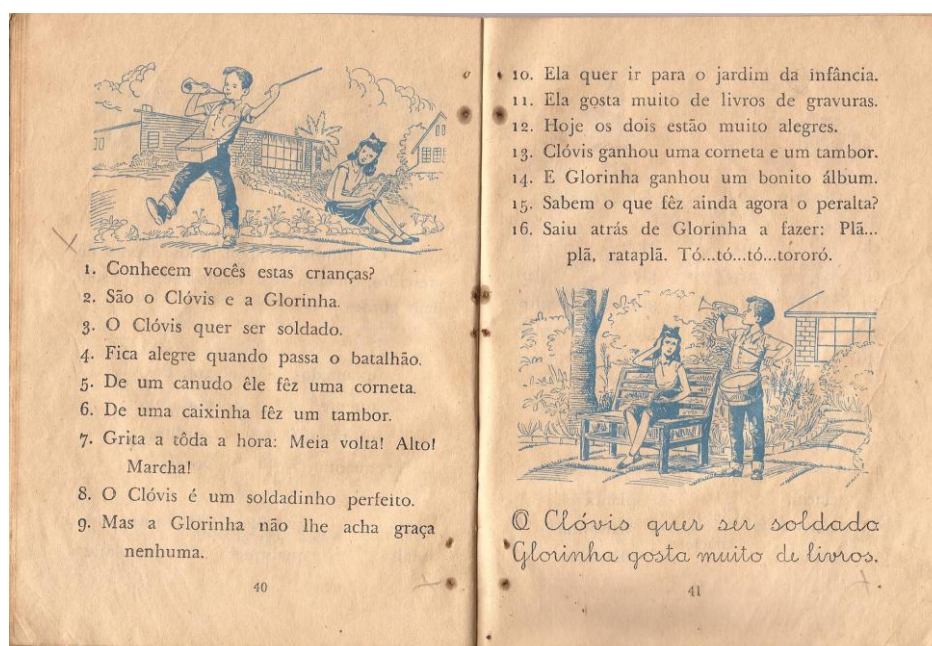 1. Conhecem vocês estas crianças?
2. São o Clóvis e a Glorinha.
3. O Clóvis quer ser soldado.
4. Fica alegre quando passa o batalhão.
5. De um canudo êle fêz uma corneta.
6. De uma caixinha fêz um tambor.
7. Grita a tôda a hora: Meia volta! Alto!
Marcha!
8. O Clóvis é um soldadinho perfeito.
9. Mas a Glorinha não lhe acha graça
nenhuma.
40
10. Ela quer ir para o jardim da infância.
11. Ela gosta muito de livros de gravuras.
12. Hoje os dois estão muito alegres.
13. Clóvis ganhou uma corneta e um tambor.
14. E Glorinha ganhou um bonito álbum.
15. Sabem o que fêz ainda agora o peralta?
16. Saiu atrás de Glorinha a fazer: Plã...
plã, rataplã. Tó...tó...tó...tóroró.
O Clóvis quer ser soldado
Glorinha gosta muito de livros.
41